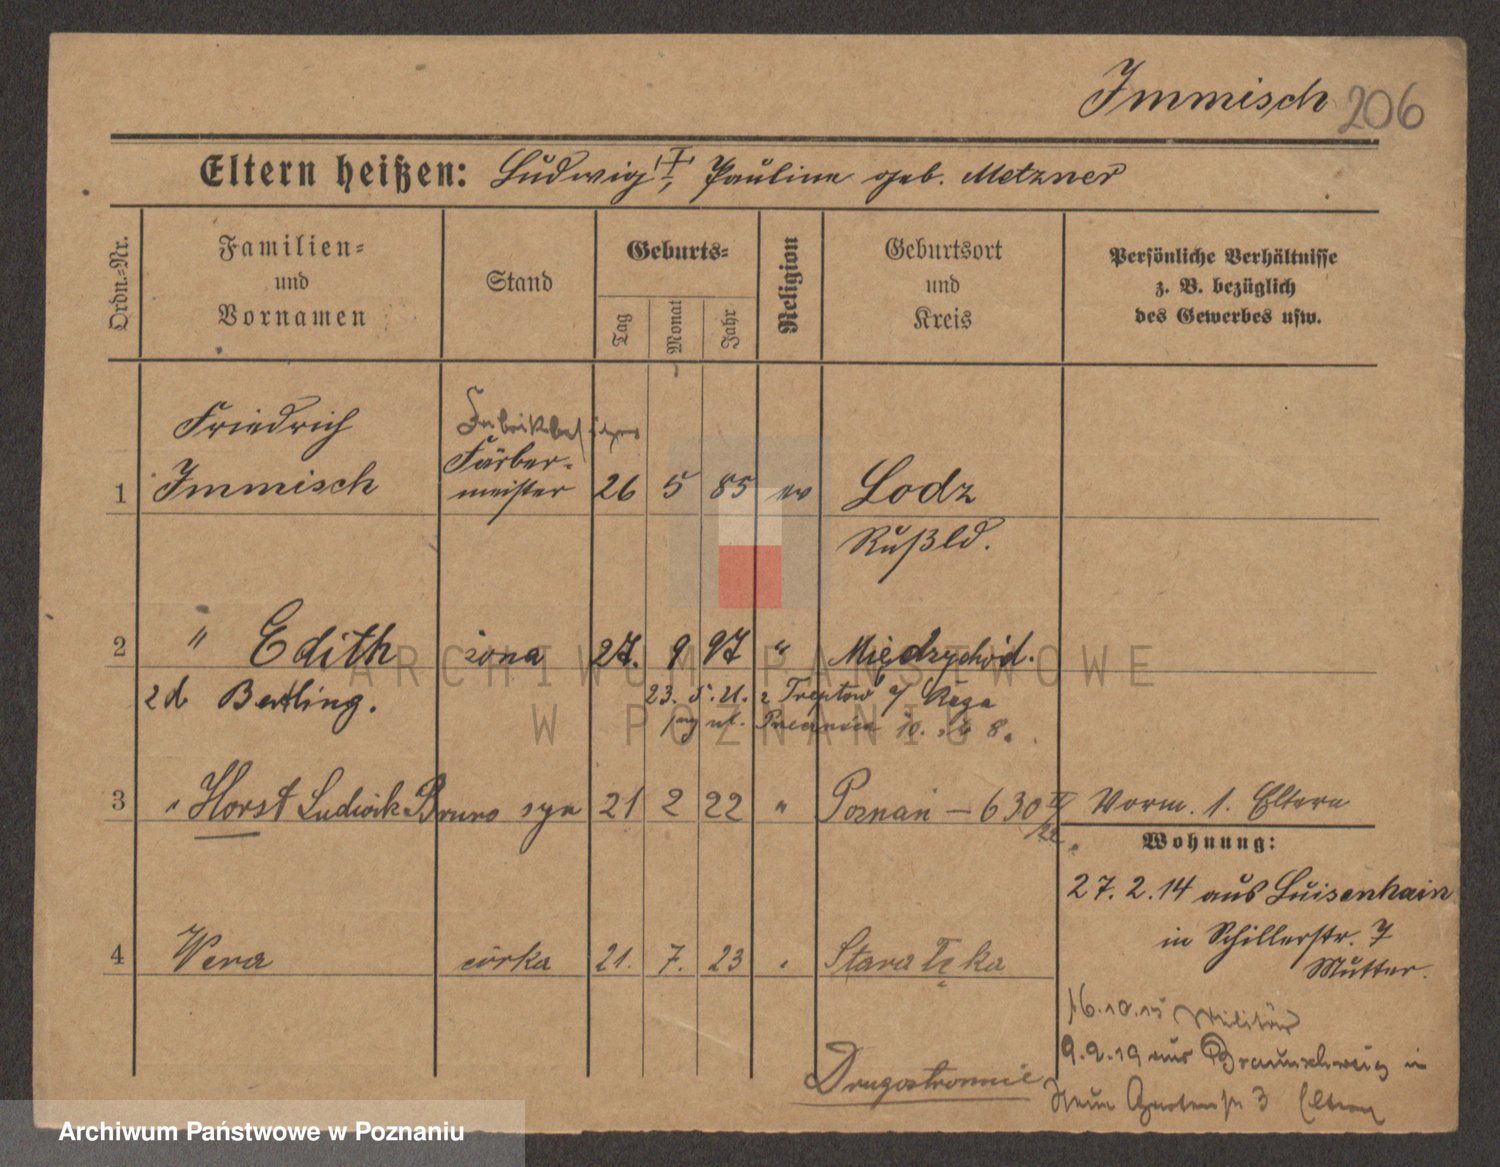 Immisch 206
Eltern heißen: Ludwig I, Pauline geb. Metzner
Ordn.-Nr.
Familien-
und
Vornamen
Stand
Geburts-
Tag
Monat
Jahr
Religion
Geburtsort
und
Kreis
Persönliche Verhältnisse
z. B. bezüglich
des Gewerbes usw.
Friedrich Fabrikbesitzer
Färber-
1 Immisch meister 26 5 85 ev Lodz
Rußld.
2 " Edith żona 27. 9 97 " Międzychód.
zd Bertling. 23. 5. 21. z Treptow a/ Rega
3 " Horst Ludwik Bruno syn 21 2 22 " Poznań — 630 IV Vorm. 1. Eltern
Wohnung:
27. 2. 14 aus Luisenhain
in Schillerstr. 7
Mutter.
4 Wera córka 21. 7. 23 " Starałęka
16.10.15 Militär
9.2.19 aus Braunschweig in
Neue Gartenstr 3 Eltern
Drugostronnie
ARCHIWUM PAŃSTWOWE
W POZNANIU
Archiwum Państwowe w Poznaniu